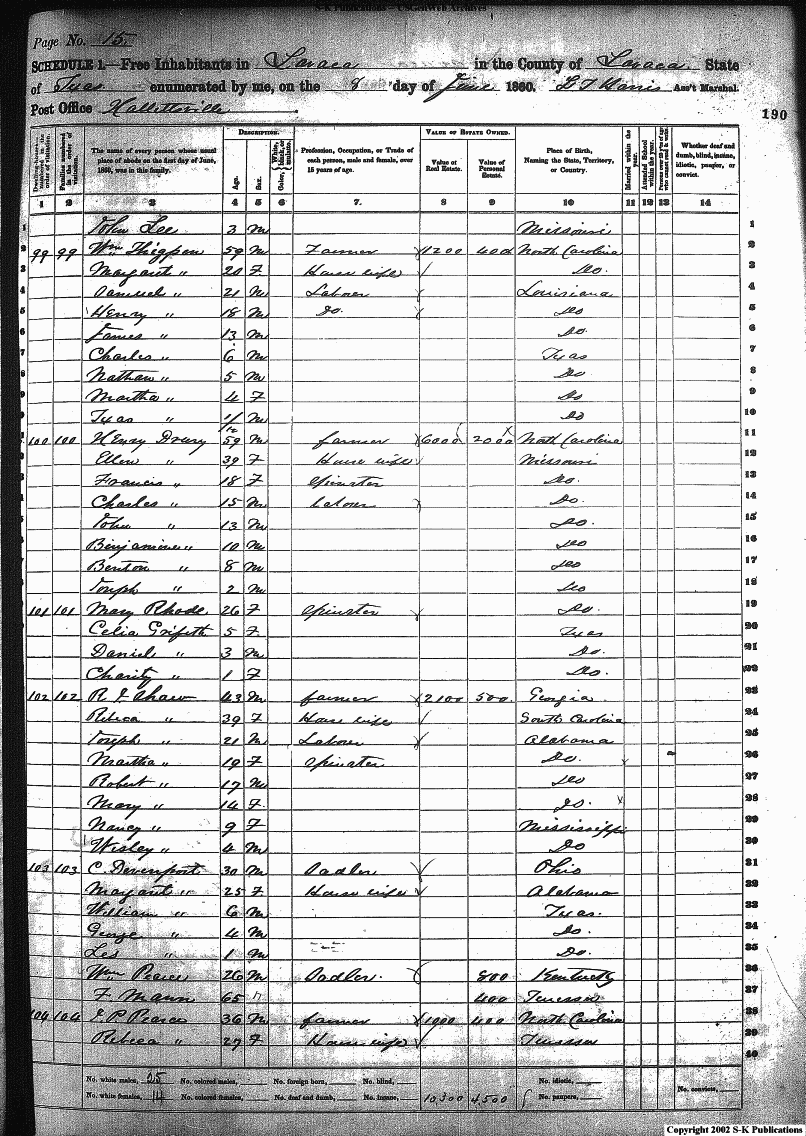 S-K Publications - USGenWeb Archives
Page No. 15.
SCHEDULE 1.—Free Inhabitants in Lavaca in the County of Lavaca State
of Texas enumerated by me, on the 8 day of June 1860. Ass't Marshal.
Post Office Hallettsville
190
DESCRIPTION. VALUE OF ESTATE OWNED.
Dwelling-houses numbered in the order of visitation. Families numbered in the order of visitation. The name of every person whose usual place of abode on the first day of June, 1860, was in this family. Age. Sex. Color, White, black, or mulatto. Profession, Occupation, or Trade of each person, male and female, over 15 years of age. Value of Real Estate. Value of Personal Estate. Place of Birth, Naming the State, Territory, or Country. Married within the year. Attended School within the year. Whether deaf and dumb, blind, insane, idiotic, pauper, or convict.
1 2 3 4 5 6 7. 8 9 10 11 12 13 14
1 John Lee 3 M Missouri 1
2 99 99 Wm Thigpen 59 M Farmer 1200 400 North Carolina 2
3 Margaret " 20 F House wife Do. 3
4 Samuel " 21 M Laborer Louisiana 4
5 Henry " 18 M Do. Do 5
6 James " 13 M Do. 6
7 Charles " 6 M Texas 7
8 Nathan " 5 M Do 8
9 Martha " 4 F Do 9
Texas " 1/12 M Do 10
100 100 Henry Drury 59 M farmer 6000 2000 North Carolina 11
Ellen " 39 F House wife Missouri 12
Francis " 18 F Spinster Do. 13
Charles " 15 M Laborer Do. 14
John " 13 M Do. 15
Benjamine " 10 M Do 16
Benton " 8 M Do 17
Joseph " 2 M Do 18
101 101 Mary Rhode 26 F Spinster Do. 19
Celia Grifeth 5 F Texas 20
Daniel " 3 M Do. 21
Charity " 1 F Do. 22
102 102 R J Shaw 43 M farmer 2100 500 Georgia 23
Rebeca " 39 F House wife South Carolina 24
Joseph " 21 M Laborer Alabama 25
Martha " 19 F Spinster Do. 26
Robert " 17 M Do 27
Mary " 14 F Do. 28
Nancy " 9 F Mississippi 29
Wesley " 4 M Do 30
103 103 C. Devenport 30 M Sadler Ohio 31
Margaret " 25 F House wife Alabama 32
William " 6 M Texas. 33
George " 4 M Do. 34
Les " 1 M Do. 35
Wm Pearce 26 M Sadler. 800 Kentucky 36
F Mann 65 " 400 37
104 104 E P Pearce 36 M farmer 1900 400 North Carolina 38
Rebeca " 27 F House wife 39
40
No. white males, 25 No. colored males, No. foreign born, No. blind, No. idiotic,
No. white females, 14 No. colored females, No. deaf and dumb, No. insane, 10300 4500 No. paupers, No. convicts,
Copyright 2002 S-K Publications